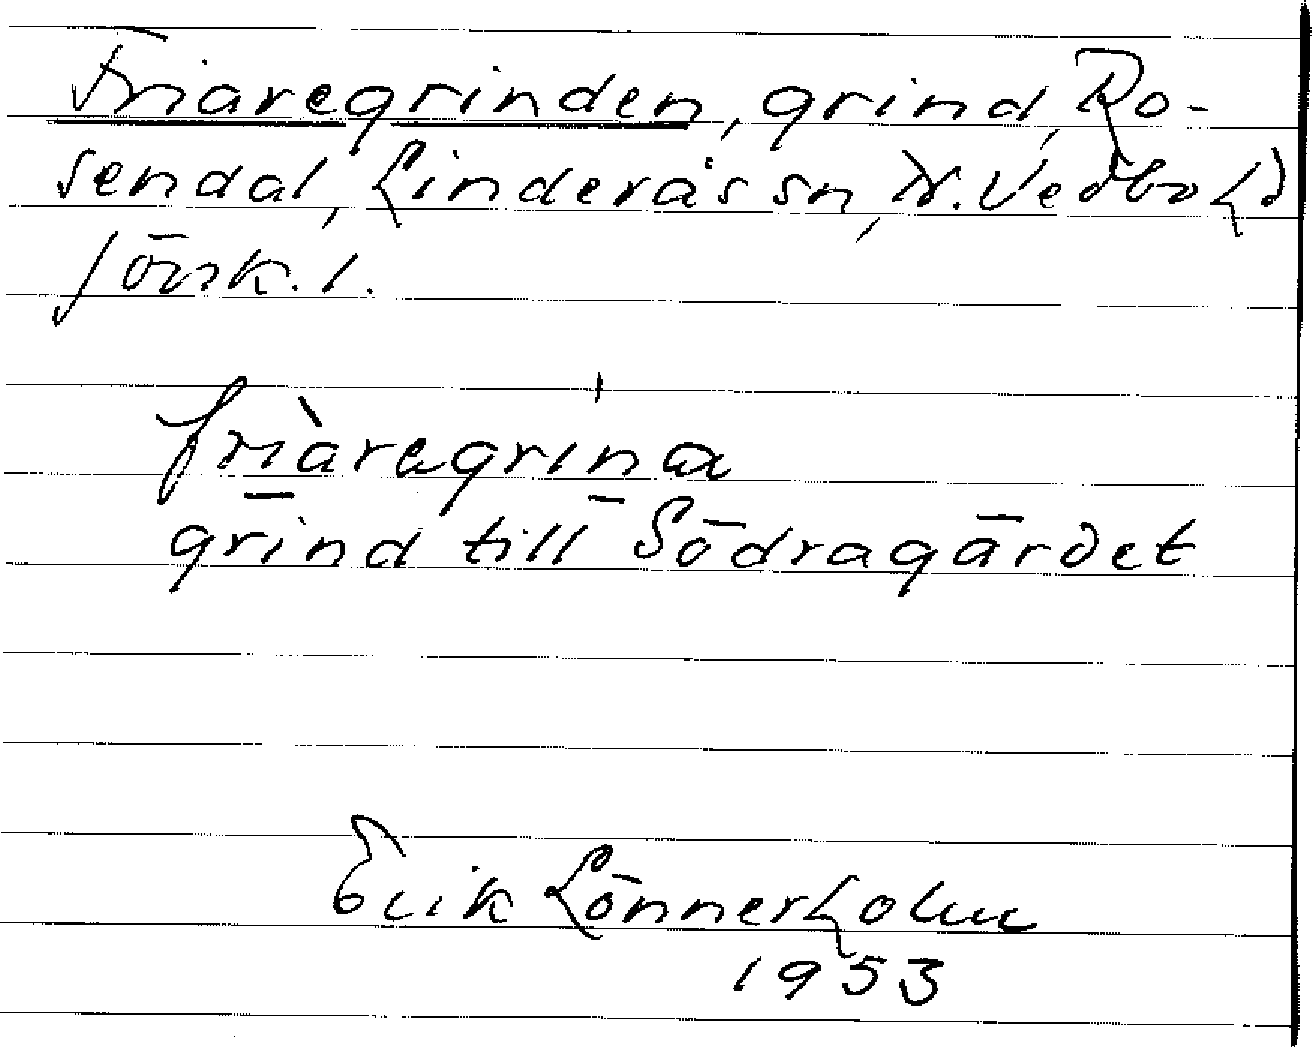 Friaregrinden, grind, Ro-
sendal, Linderås sn, N. Vedbo hd
Jönk. l.
friàregrina
grind till Södragärdet
Erik Lönnerholm
1953